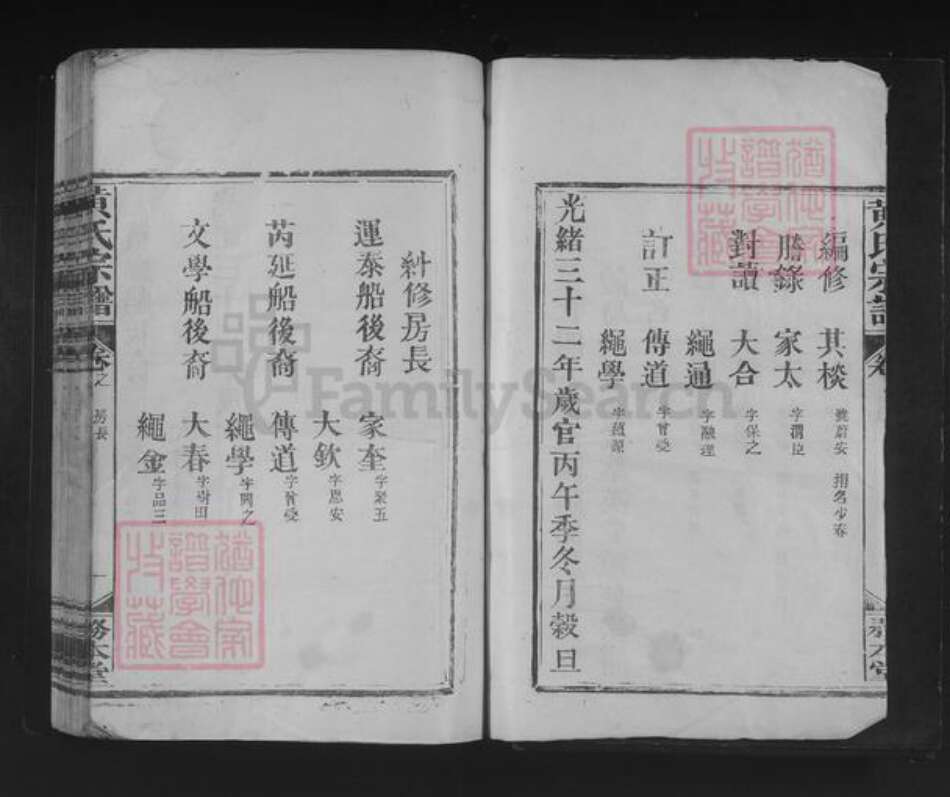 黃氏宗譜 卷
編修 其棪 號蔚安 捐名少春
謄錄 家太 字渭臣
對讀 大合 字保之
繩通 字融理
訂正 傳道 字曾受
繩學 字蘊源
光緒三十二年歲官丙午季冬月穀旦
務本堂
糾修房長
運泰船後裔 家奎 字聚五
大欽 字恩安
芮延船後裔 傳道 字曾受
繩學 字興之
文學船後裔 大春 字樹田
繩金 字品三
黃氏宗譜 卷之 房長 一 務本堂
猶他家譜學會收藏
猶他家譜學會收藏
FamilySearch